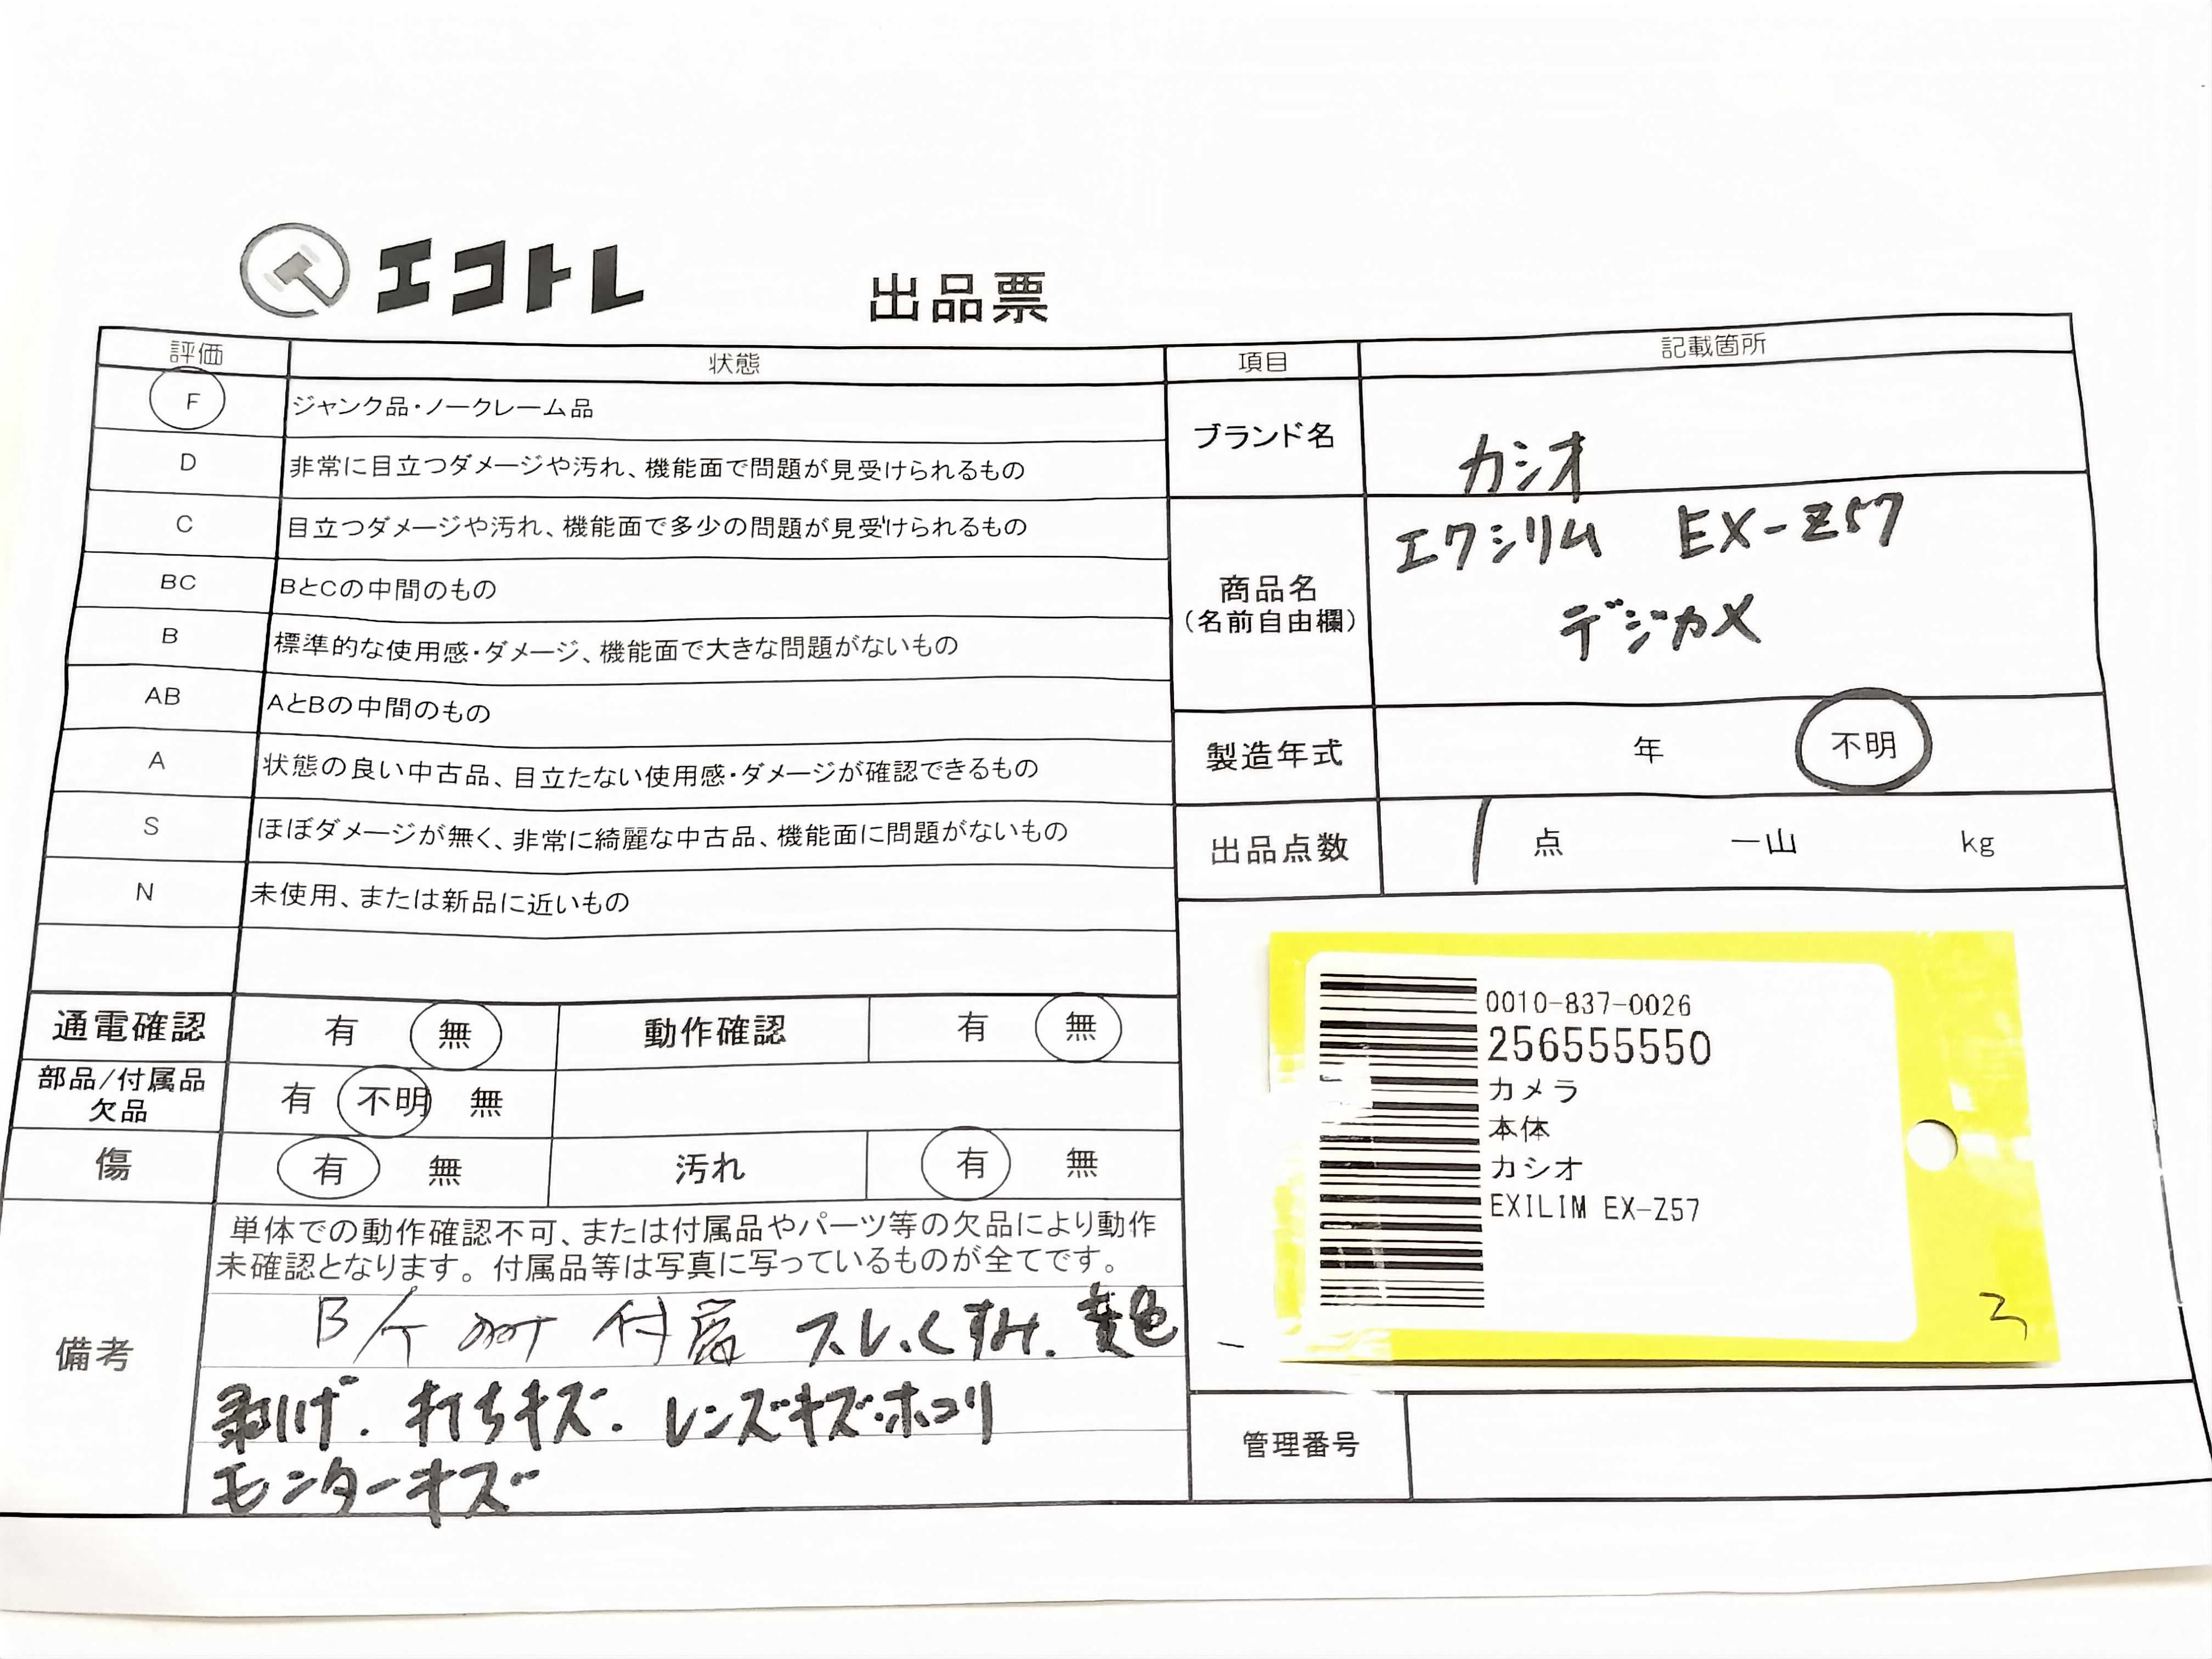 エコトレ 出品票
評価 状態
F ジャンク品・ノークレーム品
D 非常に目立つダメージや汚れ、機能面で問題が見受けられるもの
C 目立つダメージや汚れ、機能面で多少の問題が見受けられるもの
BC BとCの中間のもの
B 標準的な使用感・ダメージ、機能面で大きな問題がないもの
AB AとBの中間のもの
A 状態の良い中古品、目立たない使用感・ダメージが確認できるもの
S ほぼダメージが無く、非常に綺麗な中古品、機能面に問題がないもの
N 未使用、または新品に近いもの
通電確認 有 無 動作確認 有 無
部品/付属品
欠品 有 不明 無
傷 有 無 汚れ 有 無
備考
単体での動作確認不可、または付属品やパーツ等の欠品により動作
未確認となります。付属品等は写真に写っているものが全てです。
付属 スレ.くすみ.変色
剥げ.打ちキズ.レンズキズ.ホコリ
モニターキズ
項目 記載箇所
ブランド名 カシオ
商品名
(名前自由欄)
エクシリム EX-Z57
デジカメ
製造年式 年 不明
出品点数 1 点 一山 kg
0010-837-0026
256555550
カメラ
本体
カシオ
EXILIM EX-Z57
管理番号